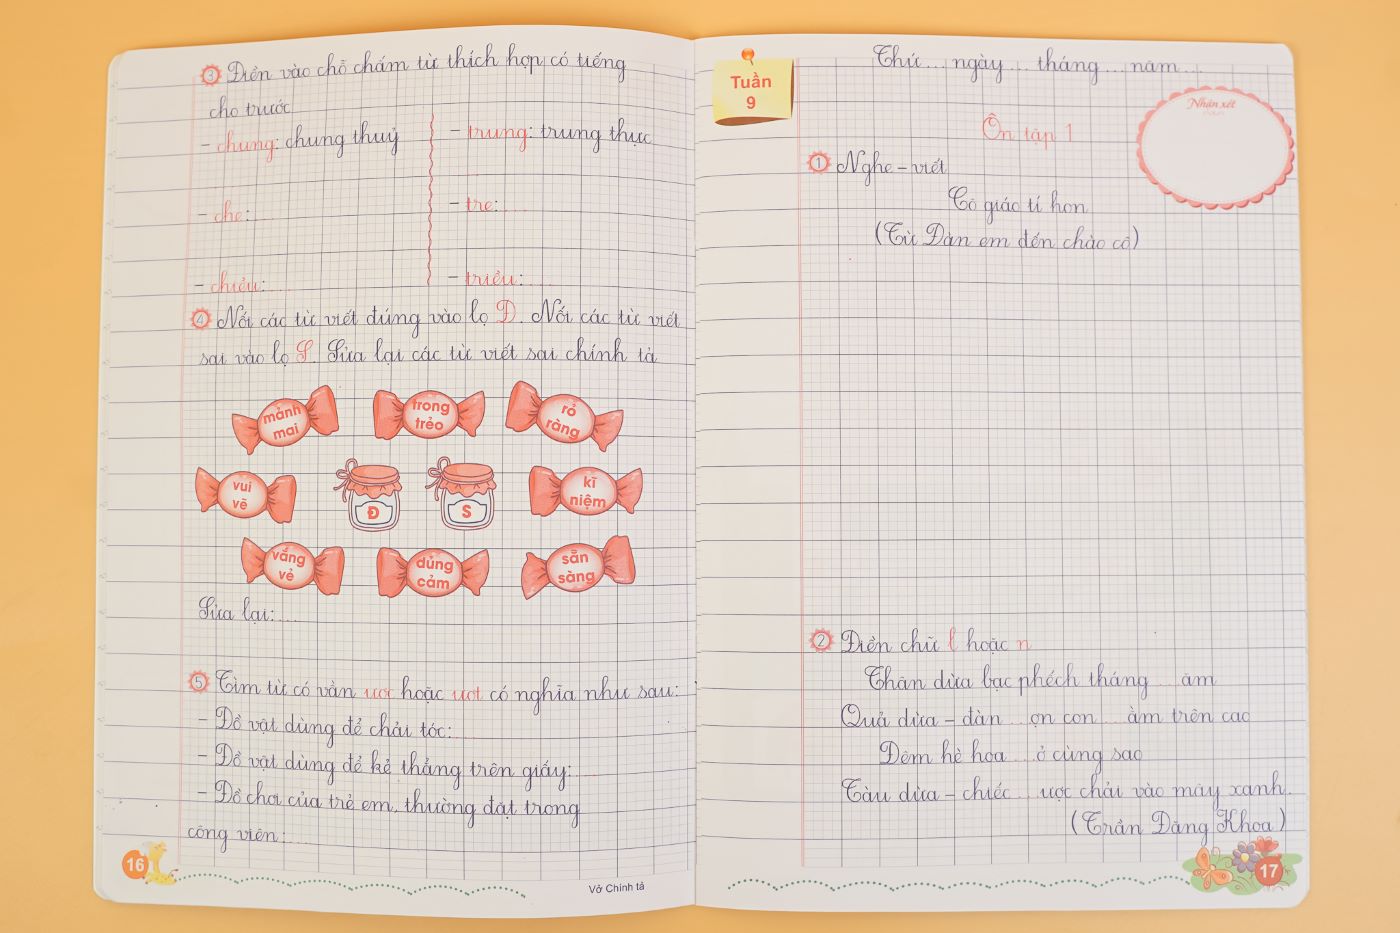 3 Điền vào chỗ chấm từ thích hợp có tiếng
cho trước
- chung: chung thuỷ
- trung: trung thực
- che:....
- tre:....
- chiều:....
- triều:....
4 Nối các từ viết đúng vào lọ Đ. Nối các từ viết
sai vào lọ S. Sửa lại các từ viết sai chính tả
mảnh
mai
trong
trẻo
rỏ
ràng
vui
vẽ
Đ
S
kĩ
niệm
vắng
vẻ
dủng
cảm
sẵn
sàng
Sửa lại:....
5 Tìm từ có vần ươc hoặc ươt có nghĩa như sau:
- Đồ vật dùng để chải tóc:....
- Đồ vật dùng để kẻ thẳng trên giấy:....
- Đồ chơi của trẻ em, thường đặt trong
công viên:....
16
Vở Chính tả
Tuần
9
Thứ... ngày... tháng... năm...
Nhận xét
Ôn tập 1
1 Nghe - viết
Cô giáo tí hon
(Từ Đàn em đến chào cô)
2 Điền chữ l hoặc n
Thân dừa bạc phếch tháng ...ăm
Quả dừa - đàn ...ợn con ...ằm trên cao
Đêm hè hoa ...ở cùng sao
Tàu dừa - chiếc ...ược chải vào mây xanh.
(Trần Đăng Khoa)
17